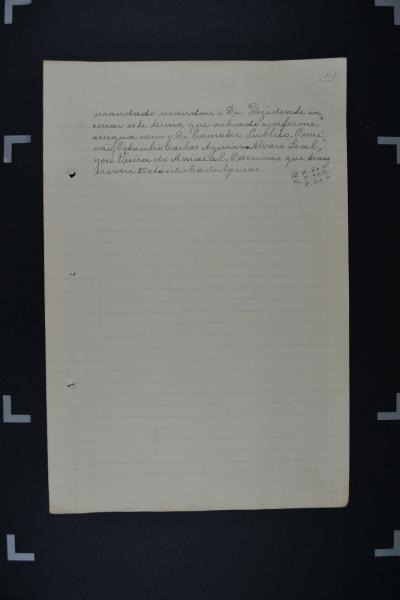 mandado, mandou o Dr Prezidente en
cerrar este termo, que achado conforme
assigna com o Dr Promotor Publico. O escri
vão, Octacilio Carlos Aguiar. Alvaro Leal,
José Vieira do Amaral. O escrivão que trans
crevera Octacilio Carlos Aguiar